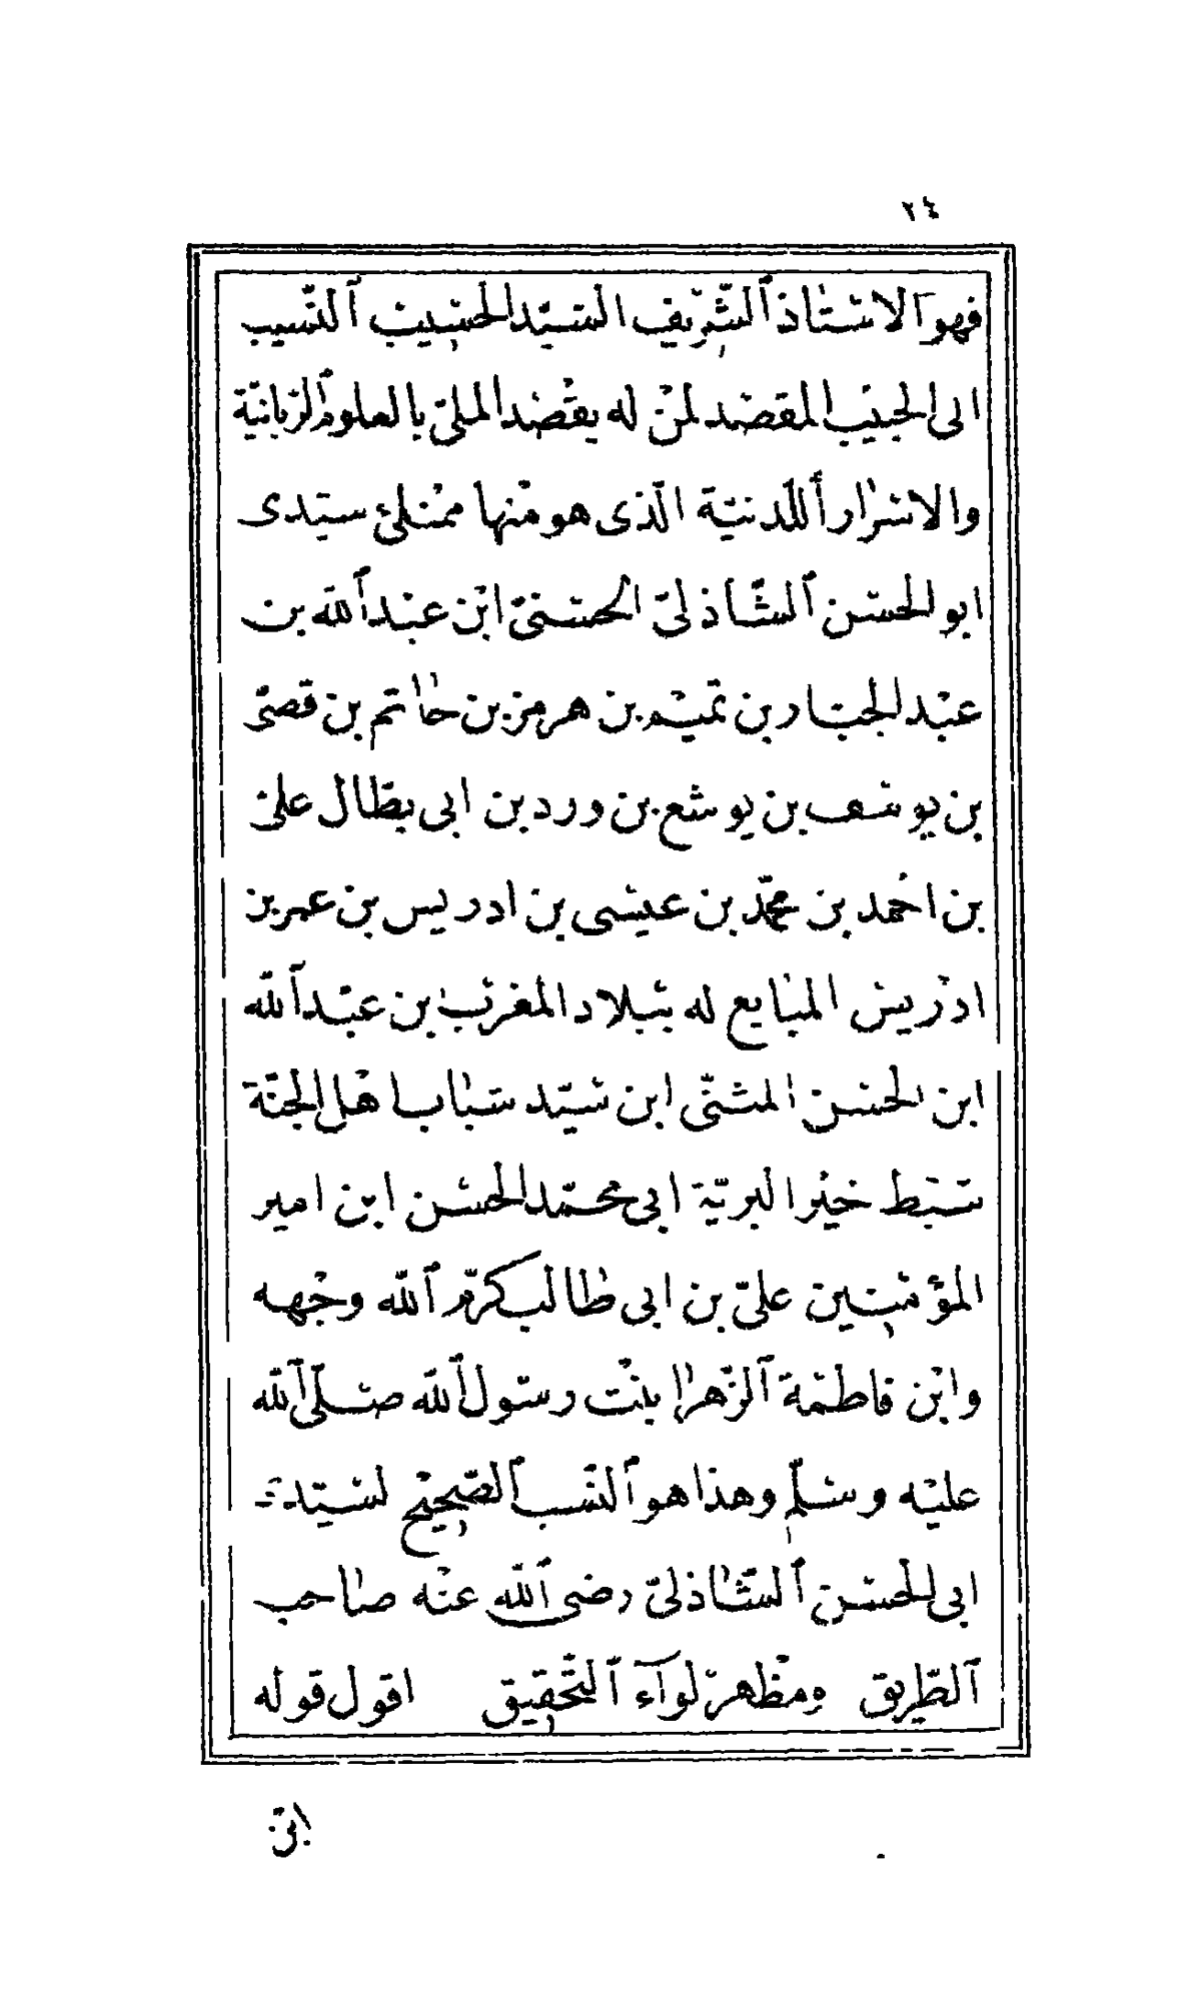 ٢٤
فهو الاستاذ الشريف السيد الحسيب النسيب
الى الحبيب المقصد لمن له يقصد الملئ بالعلوم الربانية
والاسرار اللدنية الذى هو منها ممتلئ سيدى
ابو الحسن الشاذلىّ الحسنىّ ابن عبد الله بن
عبد الجبار بن تميم بن هرمز بن حاتم بن قصىّ
بن يوسف بن يوشع بن ورد بن ابى بطّال على
بن احمد بن محمّد بن عيسى بن ادريس بن عمر بن
ادريس المبايع له ببلاد المغرب بن عبد الله
ابن الحسن المثنّى ابن سيّد شباب اهل الجنّة
سبط خير البريّة ابى محمّد الحسن ابن امير
المؤمنين علىّ بن ابى طالب كرّم الله وجهه
وابن فاطمة الزّهرا بنت رسول الله صلّى الله
عليه وسلّم وهذا هو النّسب الصّحيح لسيّد
ابى الحسن الشّاذلىّ رضى الله عنه صاحب
الطّريق ومظهر لوآء التّحقيق اقول قوله
ابن